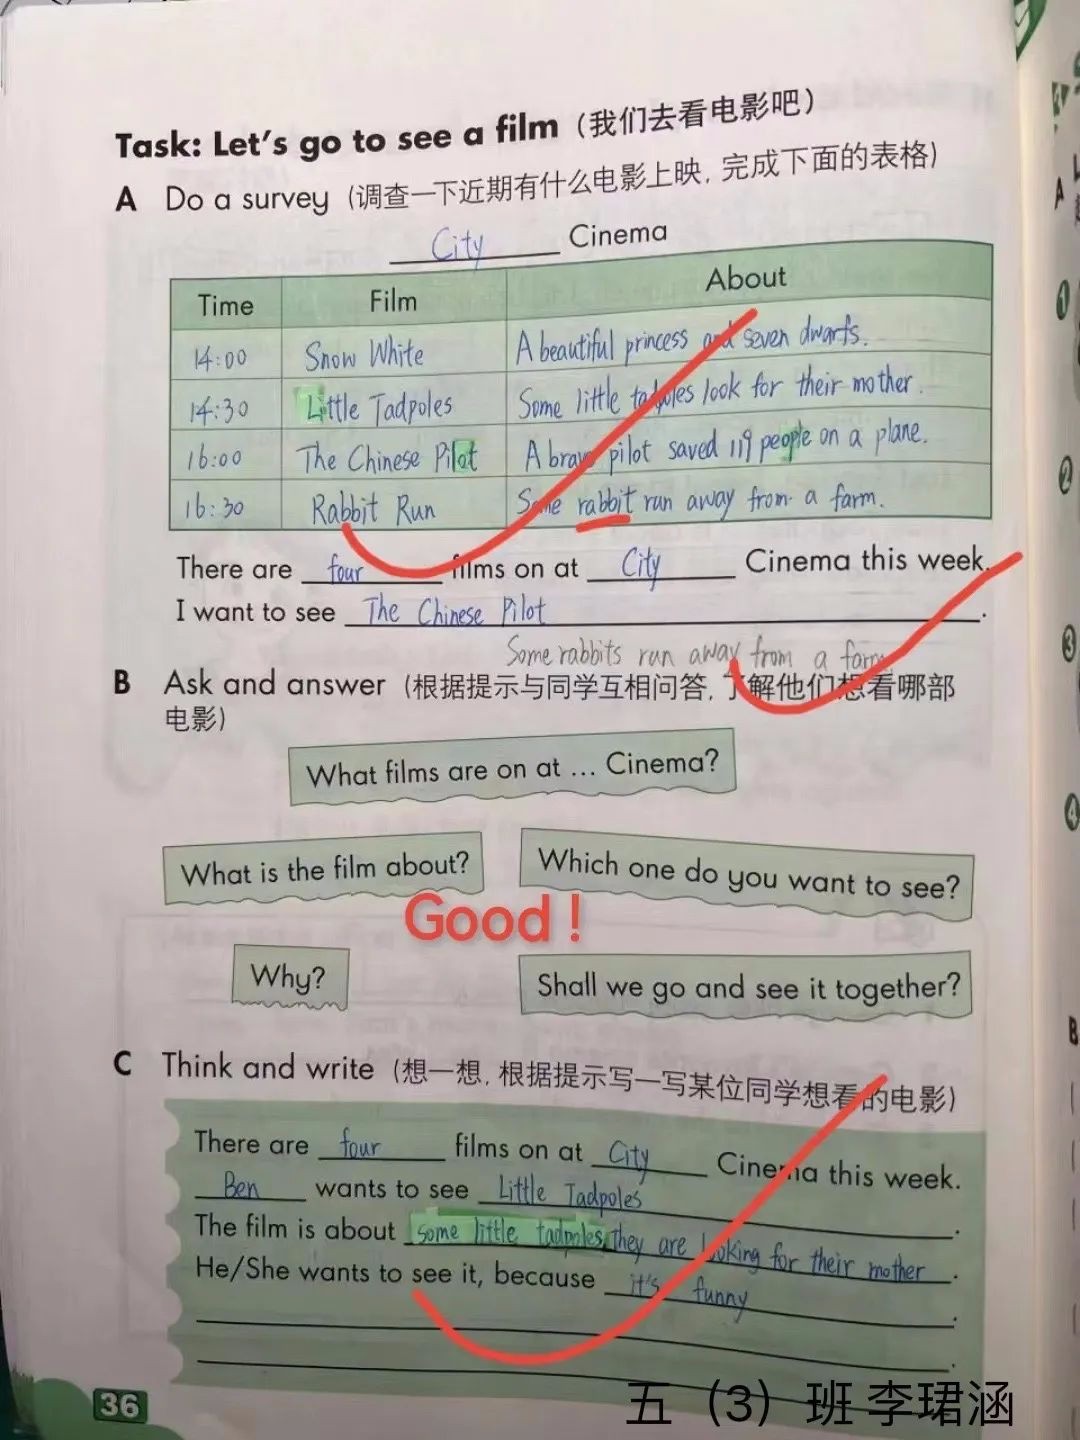 Task: Let's go to see a film (我们去看电影吧)
A Do a survey (调查一下近期有什么电影上映, 完成下面的表格)
City Cinema
Time Film About
14:00 Snow White A beautiful princess and seven dwarfs.
14:30 Little Tadpoles Some little tadpoles look for their mother.
16:00 The Chinese Pilot A brave pilot saved 119 people on a plane.
16:30 Rabbit Run Some rabbit run away from a farm.
There are four films on at City Cinema this week.
I want to see The Chinese Pilot.
Some rabbits run away from a farm
B Ask and answer (根据提示与同学互相问答, 了解他们想看哪部
电影)
What films are on at ... Cinema?
What is the film about?
Which one do you want to see?
Good!
Why?
Shall we go and see it together?
C Think and write (想一想, 根据提示写一写某位同学想看的电影)
There are four films on at City Cinema this week.
Ben wants to see Little Tadpoles.
The film is about some little tadpoles, they are looking for their mother.
He/She wants to see it, because it's funny.
36
五（3）班 李珺涵
A
1
2
3
4
B